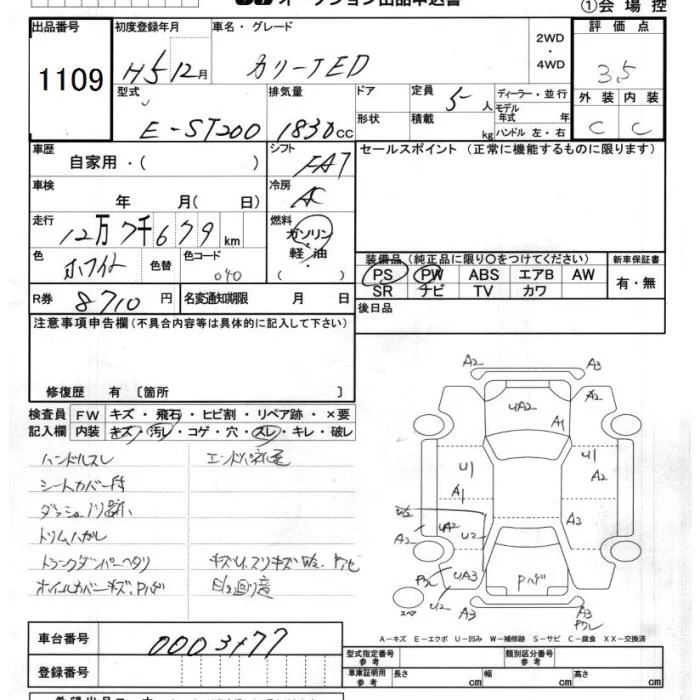 ①会場控
出品番号 初度登録年月 車名・グレード 2WD ・ 4WD 評価点
1109 H5 12月 カリーナED 3.5
型式 排気量 ドア 定員 5人 ディーラー・並行 外装 内装
E-ST200 1830cc 形状 積載 kg モデル年式 年 ハンドル 左・右 C C
車歴 シフト セールスポイント (正常に機能するものに限ります)
自家用・( ) FAT
車検 冷房
年 月( 日) AC
走行 燃料
12万7千679km ガソリン・軽油 ・( )
色 色替 色コード 装備品 (純正品に限り○をつけてください) 新車保証書
ホワイト 040 PS PW ABS エアB AW 有・無
SR ナビ TV カワ
R券 8710円 名変通知期限 月 日 後日品
注意事項申告欄(不具合内容等は具体的に記入して下さい)
修復歴 有 〔箇所 〕
検査員 FW キズ・飛石・ヒビ割・リペア跡・×要
記入欄 内装 キズ・汚レ・コゲ・穴・スレ・キレ・破レ
ハンドルスレ
シートカバー付
トリムハガレ
トランクダンパーヘタリ
ホイルカバーキズ、Pハゲ
A2 A3
UA2 A2
A1
U1 U1
A2
A1
W2 UA2 U2 A3
A2
UA3 Pハゲ
スペア U2 A3 A3
A-キズ E-エクボ U-凹み W-補修跡 S-サビ C-腐食 XX-交換済
車台番号 0003177
型式指定番号 参考 類別区分番号 参考
登録番号 車庫証明用 参考 長さ cm 幅 cm 高さ cm